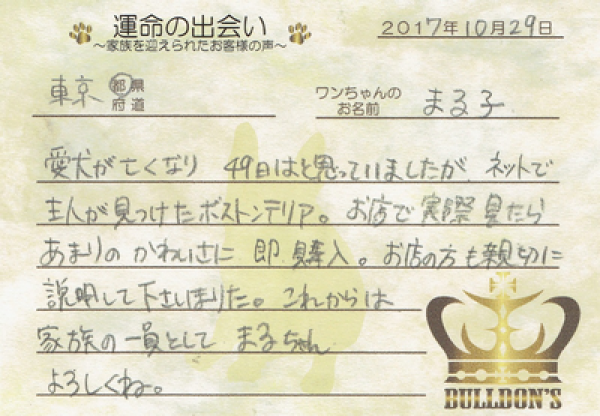 運命の出会い
～家族を迎えられたお客様の声～
2017年10月29日
東京 都 県 府 道
ワンちゃんの お名前 まる子
愛犬が亡くなり 49日はと思っていましたが、ネットで
主人が見つけたボストンテリア。お店で実際見たら
あまりの かわいさに 即 購入。お店の方も親切に
説明して下さいました。これからは
家族の一員として まるちゃん
よろしくね。
BULLDON'S